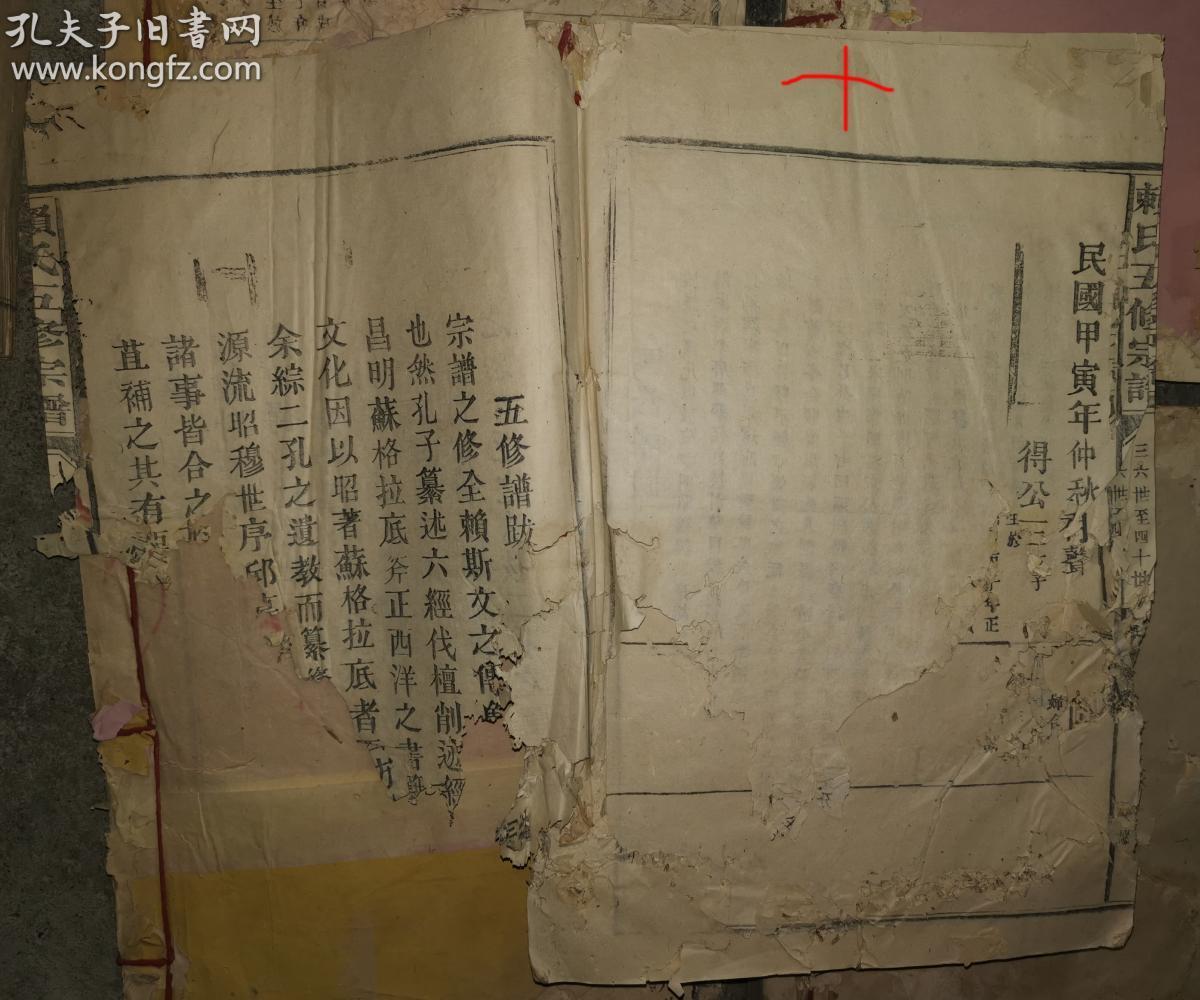 孔夫子旧书网
www.kongfz.com
賴氏五修宗譜
三六世至四十世
民國甲寅年仲秋月
得公
年正
五修譜跋
宗譜之修全賴斯文之傳
也然孔子纂述六經伐檀削述經
昌明蘇格拉底斧正西洋之書
文化因以昭著蘇格拉底者
余綜二孔之遺教而纂修
源流昭穆世序邱
諸事皆合之
苴補之其有
賴氏五修宗譜